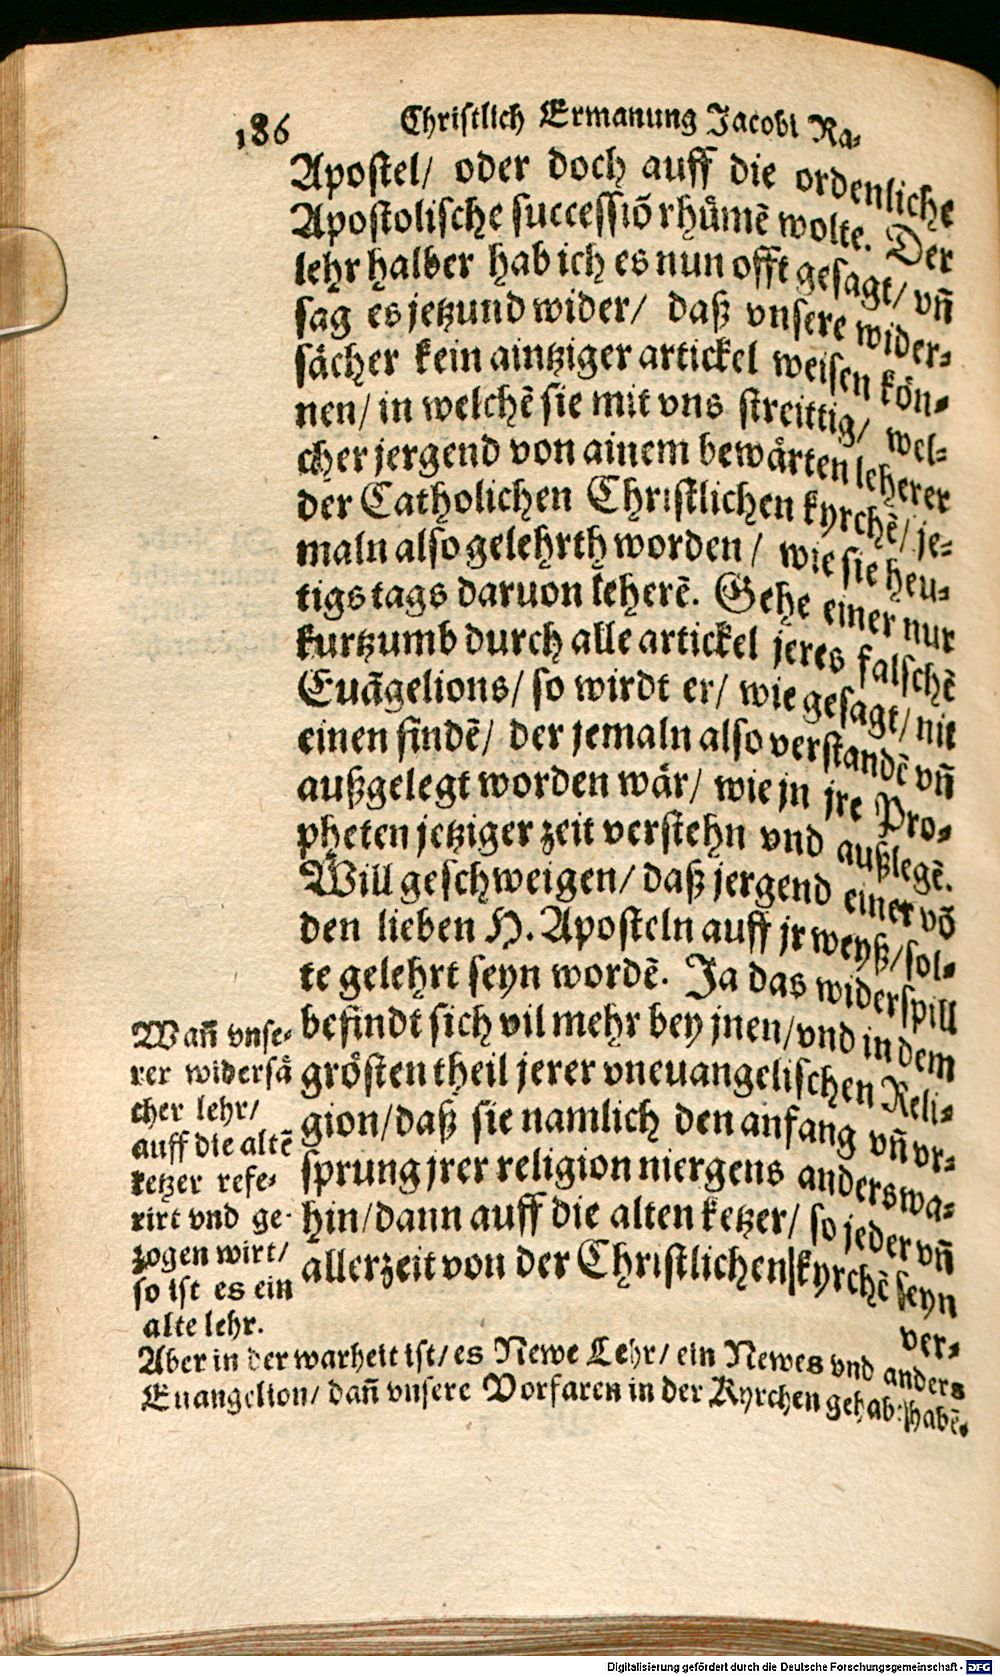 186 Christlich Ermanung Jacobi Ra-
Apostel/ oder doch auff die ordenliche
Apostolische successiõ rhůmẽ wolte. Der
lehr halber hab ich es nun offt gesagt/ vñ
sag es jetzund wider/ daß vnsere wider-
sächer kein aintziger artickel weisen kön-
nen/ in welchẽ sie mit vns streittig/ wel-
cher jergend von ainem bewärten leherer
der Catholichen Christlichen kyrchẽ/ je-
maln also gelehrth worden/ wie sie heu-
tigs tags daruon leherẽ. Gehe einer nur
kurtzumb durch alle artickel jeres falschẽ
Euãgelions/ so wirdt er/ wie gesagt/ nit
einen findẽ/ der jemaln also verstandẽ vñ
außgelegt worden wär/ wie jn jre Pro-
pheten jetziger zeit verstehn vnd außlegẽ.
Will geschweigen/ daß jergend einer võ
den lieben H. Aposteln auff jr weyß/ sol-
te gelehrt seyn wordẽ. Ja das widerspill
befindt sich vil mehr bey jnen/ vnd in dem
grösten theil jerer vneuangelischen Reli-
gion/ daß sie namlich den anfang vñ vr-
sprung jrer religion niergens anderswa-
hin/ dann auff die alten ketzer/ so jeder vñ
allerzeit von der Christlichen kyrchẽ seyn
ver-
Wañ vnse-
rer widersä
cher lehr/
auff die altẽ
ketzer refe-
rirt vnd ge-
zogen wirt/
so ist es ein
alte lehr.
Aber in der warheit ist/ es Newe Lehr/ ein Newes vnd anders
Euangelion/ dañ vnsere Vorfaren in der Kyrchen gehabt habẽ.
Digitalisierung gefördert durch die Deutsche Forschungsgemeinschaft - DFG